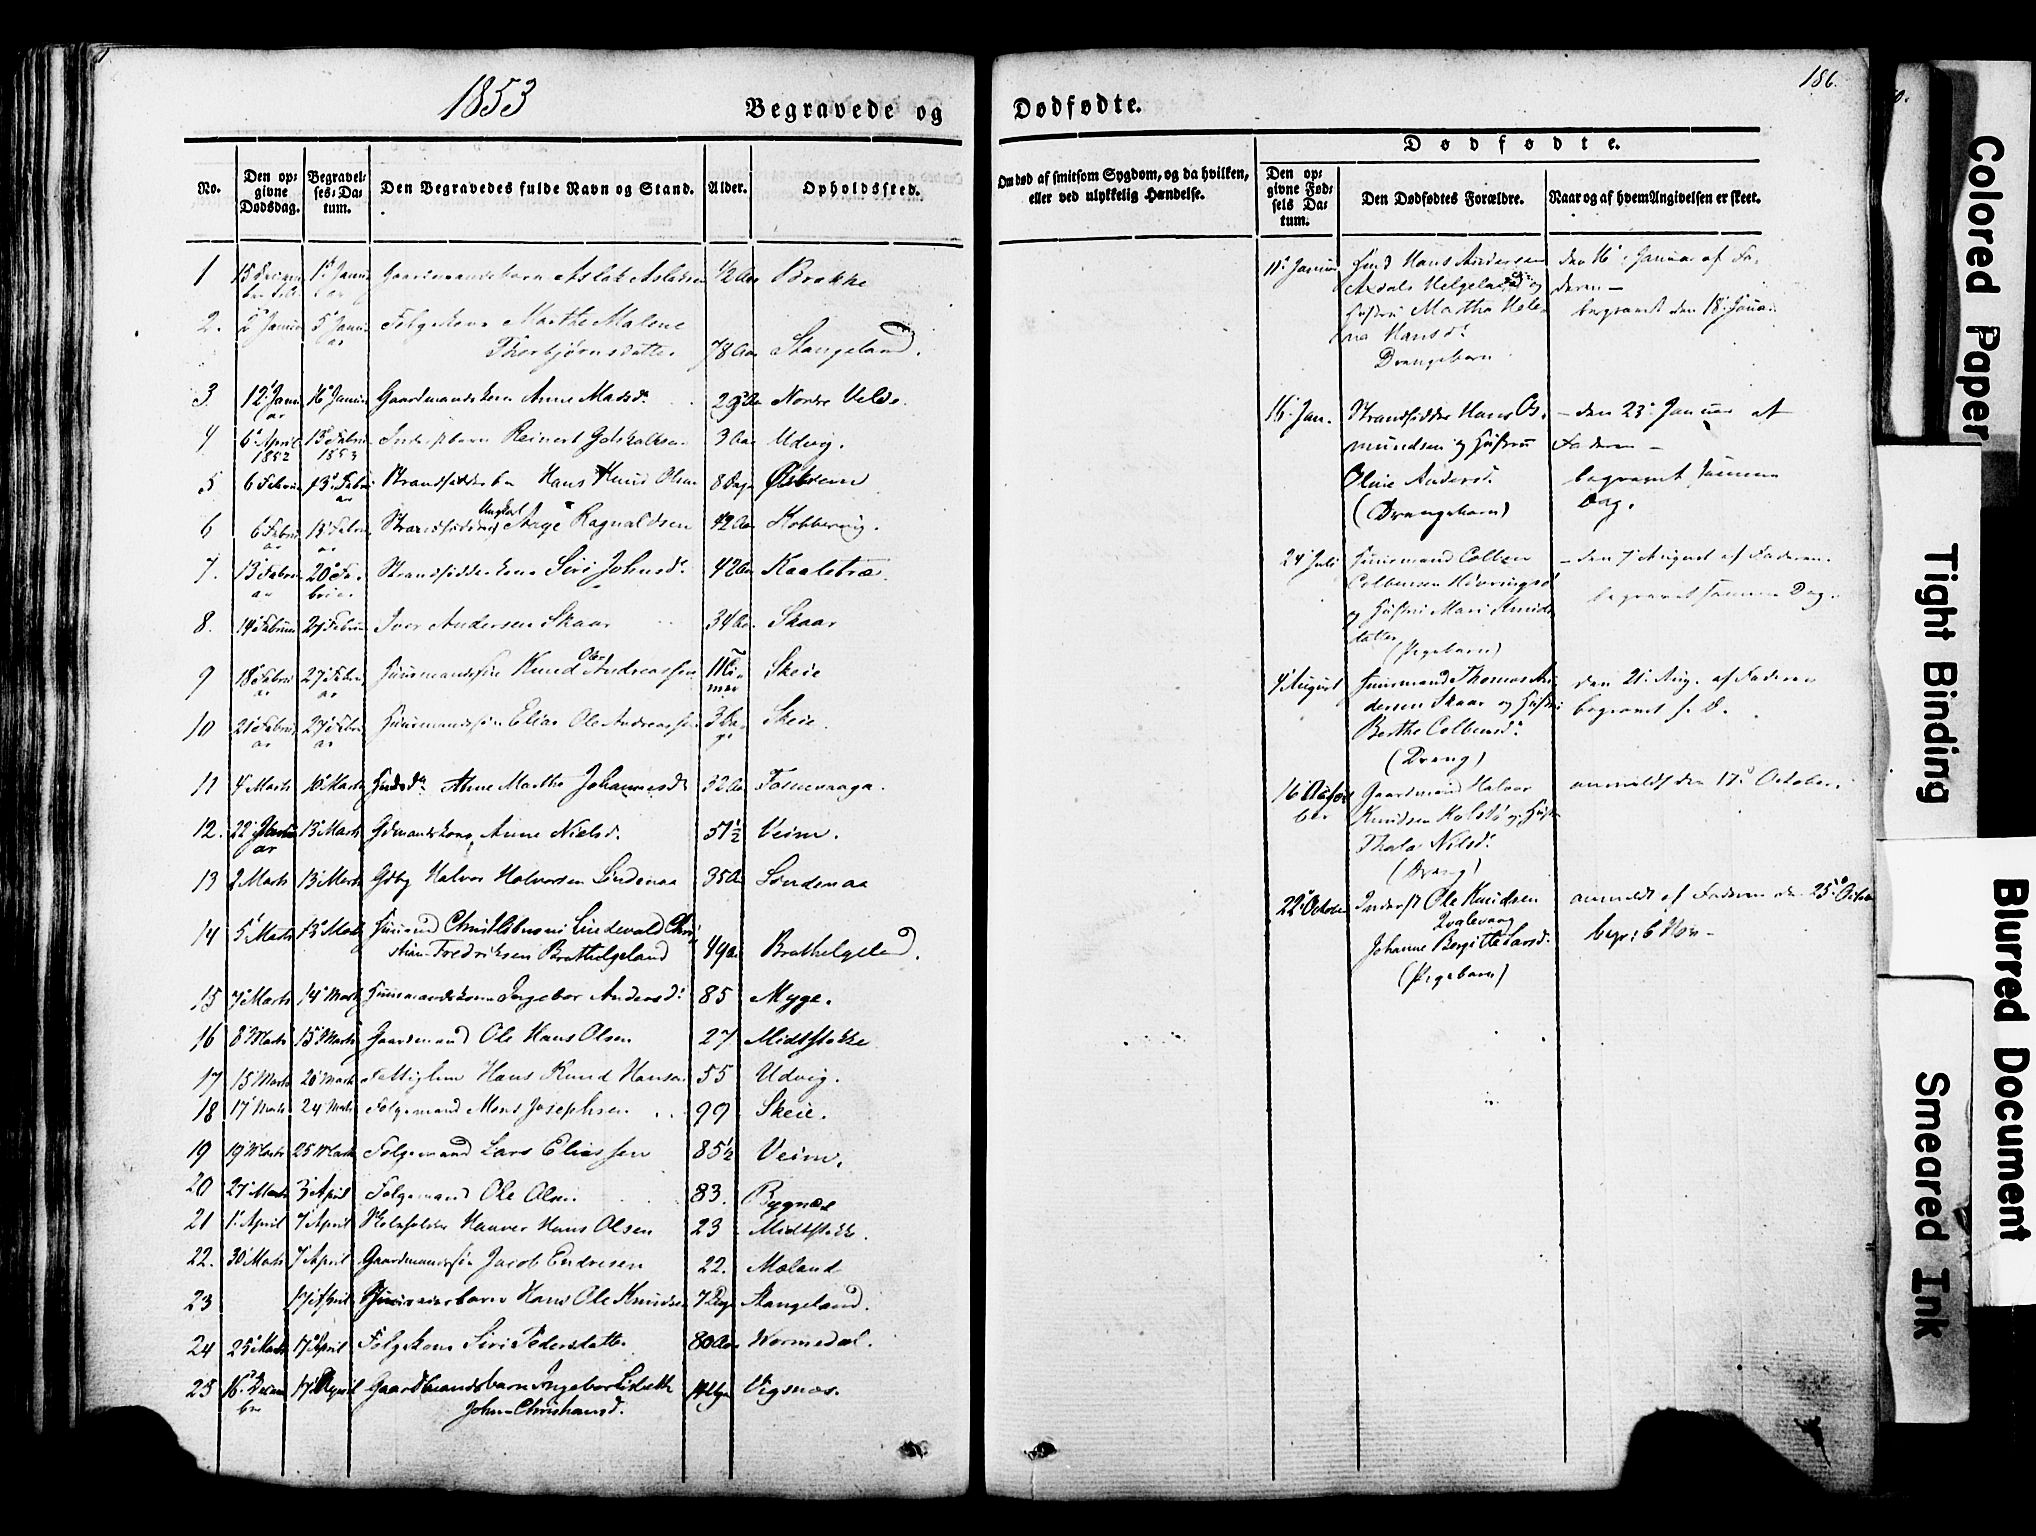 1853
Begravede og
Dødfødte.
186.
No.
Den opgivne Dødsdag.
Begravelses-Datum.
Den Begravedes fulde Navn og Stand.
Alder.
Opholdssted.
Om død af smitsom Sygdom, og da hvilken, eller ved ulykkelig Hændelse.
Dødfødte.
Den opgivne Fødsels Datum.
Den Dødfødtes Forældre.
Naar og af hvem Angivelsen er skeet.
1 Aslak Aslaksen 1/2 Aar Brække
2. 5 Januar Folgekone Marthe Malene
Thorbjørnsdatter 78 Aar Stangeland.
3 12 Januar 16 Januar Gaardmandskone Anne Madsd. 29 Aar Nordre Velde.
4 6 April 1852 13 Febru 1853 Inderstbarn Reinert 3 Aar Udvig.
5 6 Februar 13 Februar Strandsidderbn Hans Knud Olsen 8 Dage Østrem
6 6 Februar Ungkarl Aage Ragnaldsen 42 Aar Kobbervig.
7. 13 Februar 20 Februar Strandsidderkone Siri Johnsd. 42 Aar Kaaletræ.
8. 14 Februar 27 Februar Iver Andersen Skaar 34 Aar. Skaar
9 18 Februar 27 Februar Huusmandssøn Knud Ole Andreassen 11 Timer Skeie
10 21 Februar 27 Februar Huusmandssøn Elias Ole Andreassen 3 Dage Skeie.
11 4 Marts 10 Marts Anne Marthe Johannesd. 32 Aar Fosnevaaga.
12. 22 Januar 13 Marts Gdmandskone Anne Nielsd. 51 1/2 Veim.
13 2 Marts 13 Marts Gdbg Halvor Halvorsen Søndenaa 35 Aar Søndenaa
14 5 Marts 13 Marts Lindevald Christian
Fredriksen Brathelgeland 49 Aar Brathelgeland.
15 7 Marts 14 Marts Huusmandskone Ingebor Andersd. 85 Myge.
16 8 Marts 15 Marts Gaardmand Ole Hans Olsen 27 Midtstokke
17 15 Marts 20 Marts Fattiglem Hans Knud Hansen 55 Udvig.
18 17 Marts 24 Marts Folgemand Mons Josephsen 99 Skeie.
19 19 Marts 25 Marts Folgemand Lars Eliassen 85 1/2 Veim.
20 27 Marts 3 April Folgemand Ole Olsen 83. Bygnæs
21 1 April 7 April Skoleholder Haaver Hans Olsen 23 Midtstokke.
22. 30 Marts 7 April Gaardmandssøn Jacob Endresen 22. Mæland
23 17 April Hans Ole Knudsen 7 Dage Stangeland.
24 25 Marts 17 April Folgekone Siri Pedersdatter 80 Aar Wormedal.
25 16 Decembr 17 April Gaardmandsbarn Ingebor Lisbeth Vigsnæs.
John-Christiansd.
11 Januar Hans Andersen den 16 Januar af Fa-
Helgeland og deren —
Hustru Martha Hele- begravet den 18 Januar
na Hansd.
Drengebarn
16 Jan. Strandsidder Hans Os- — den 23 Januar af
mundsen og Hustru Faderen —
Oline Andersd. begravet samme
(Drengebarn) Dag.
24 Juli Huusmand Colben — den 7 August af Faderen.
Colbensen begravet samme Dag.
og Hustru Mari Knuds-
datter
(Pigebarn)
4 August Huusmand Thomas An- den 21 Aug. af Faderen
dersen Skaar og Hustru begravet s. D.
Berthe Colbensd.
(Dreng)
16 October Gaardmand Halvor anmeldt den 17 October.
Knudsen Kolstø og Hustr
Thala Nilsd.
(Dreng)
22 October Inderst Ole Knudsen anmeldt af Faderen den 25 Octobr
Kvalevaag
Johanne Bergitte Larsd.
(Pigebarn)
Colored Paper
Tight Binding
Blurred Document
Smeared Ink